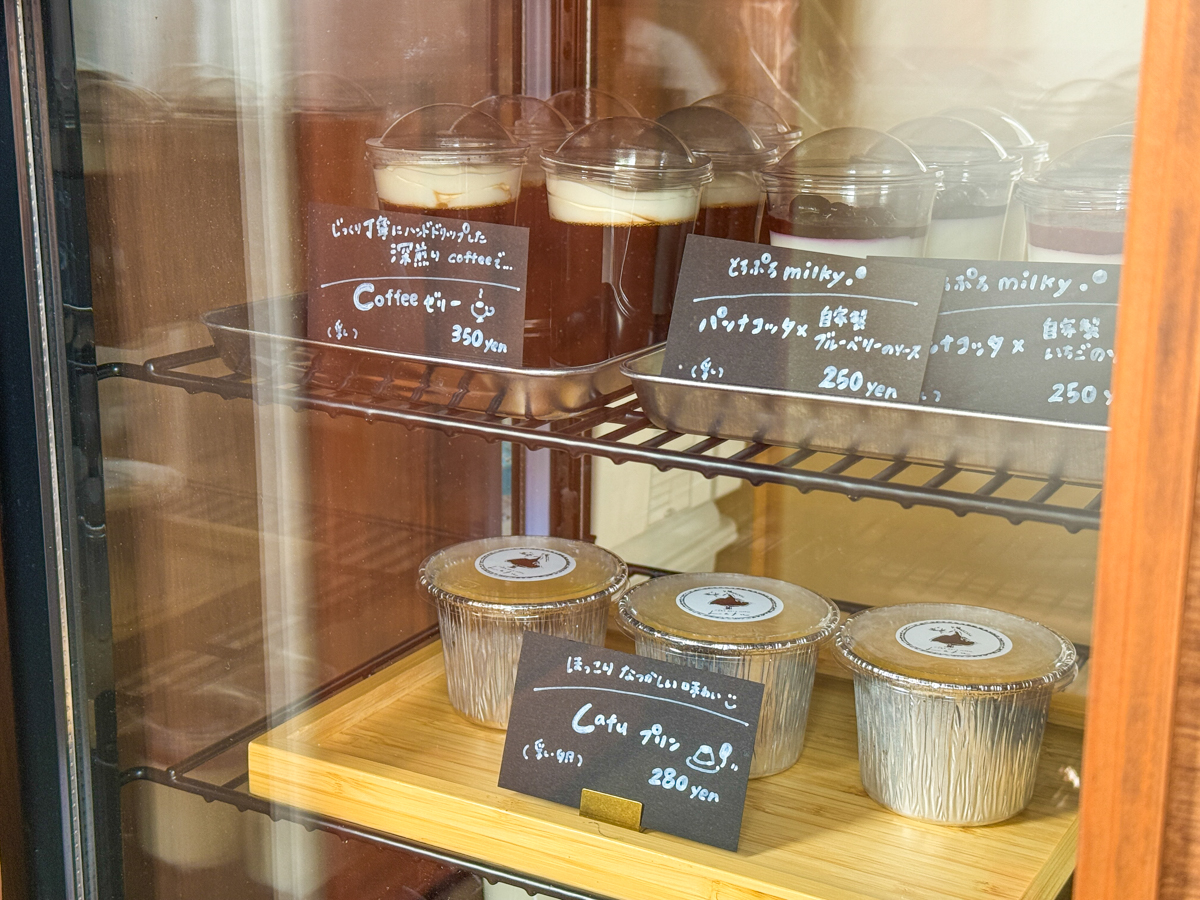 じっくり丁寧にハンドドリップした
深煎り coffeeで...
Coffee ゼリー
350yen
とろぷる milky.
パンナコッタ×
自家製
ブルーベリーのソース
(乳)
250yen
ぷる milky.
ナコッタ×
自家製
いちごの
250
ほっこり なつかしい 味わい
Lafu プリン
(乳・卵)
280yen